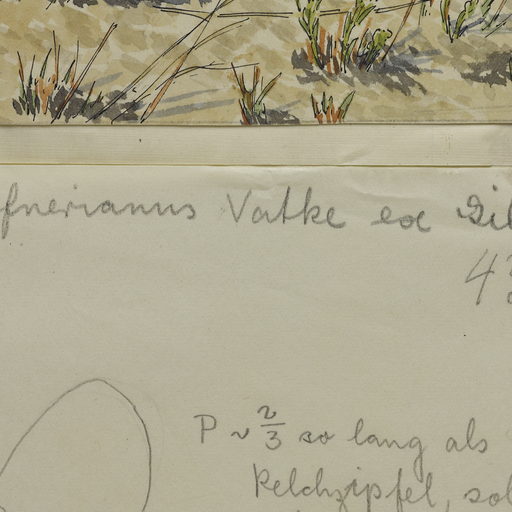 fnerianus Vatke ex
4
P ~ 2/3 so lang als
Kelchzipfel,